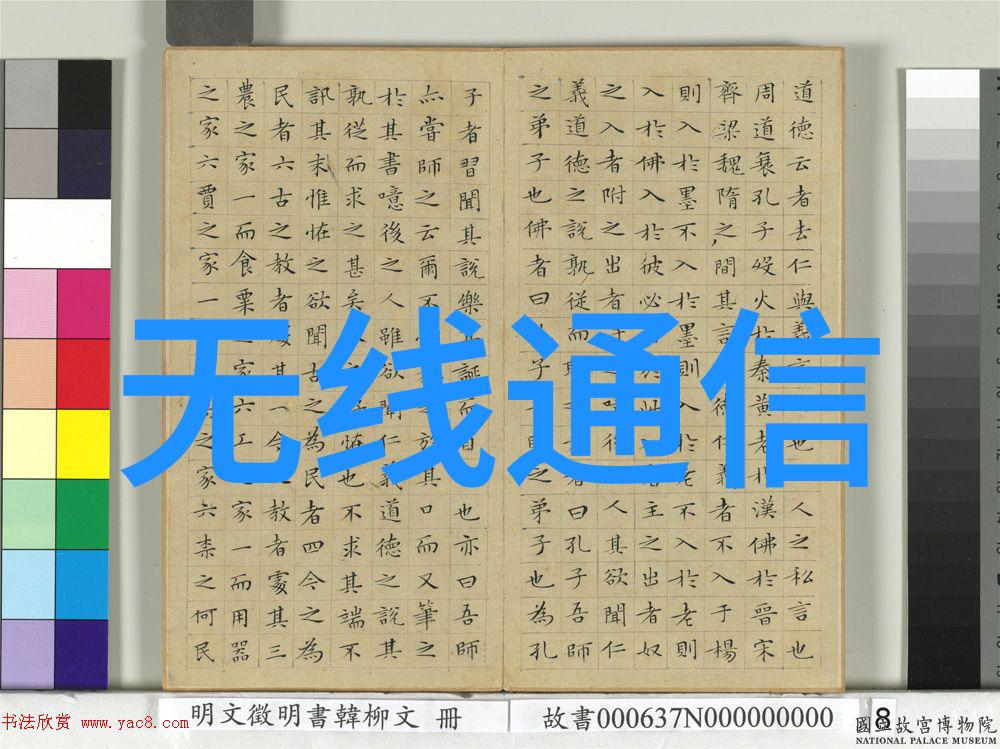 道德云者去仁與義言也人之私言也
周道衰孔子歿火於秦黃老於漢佛於晉宋
齊梁魏隋之間其言德仁義者不入于楊
則入於墨不入於墨則入於老不入於老則
入於佛入於彼必於此者主之出者奴
之入者附之出者後人其欲聞仁
義道德之說孰從而者曰孔子吾師
之弟子也佛者曰子之弟子也為孔
子者習聞其說樂其誕而自也亦曰吾師
亦嘗師之云爾不之於其口而又筆之
於其書噫後之人雖欲聞仁義道德之說其
孰從而求之甚矣人好怪也不求其端不
訊其末惟怪之欲聞古之為民者四今之為
民者六古之教者處其一今之教者處其三
農之家一而食粟之家六工之家一而用器
之家六賈之家一之家六柰之何民
无线通信
明文徵明書韓柳文 冊
故書000637N000000000
8
书法欣赏 www.yac8.com
國立故宮博物院
NATIONAL PALACE MUSEUM